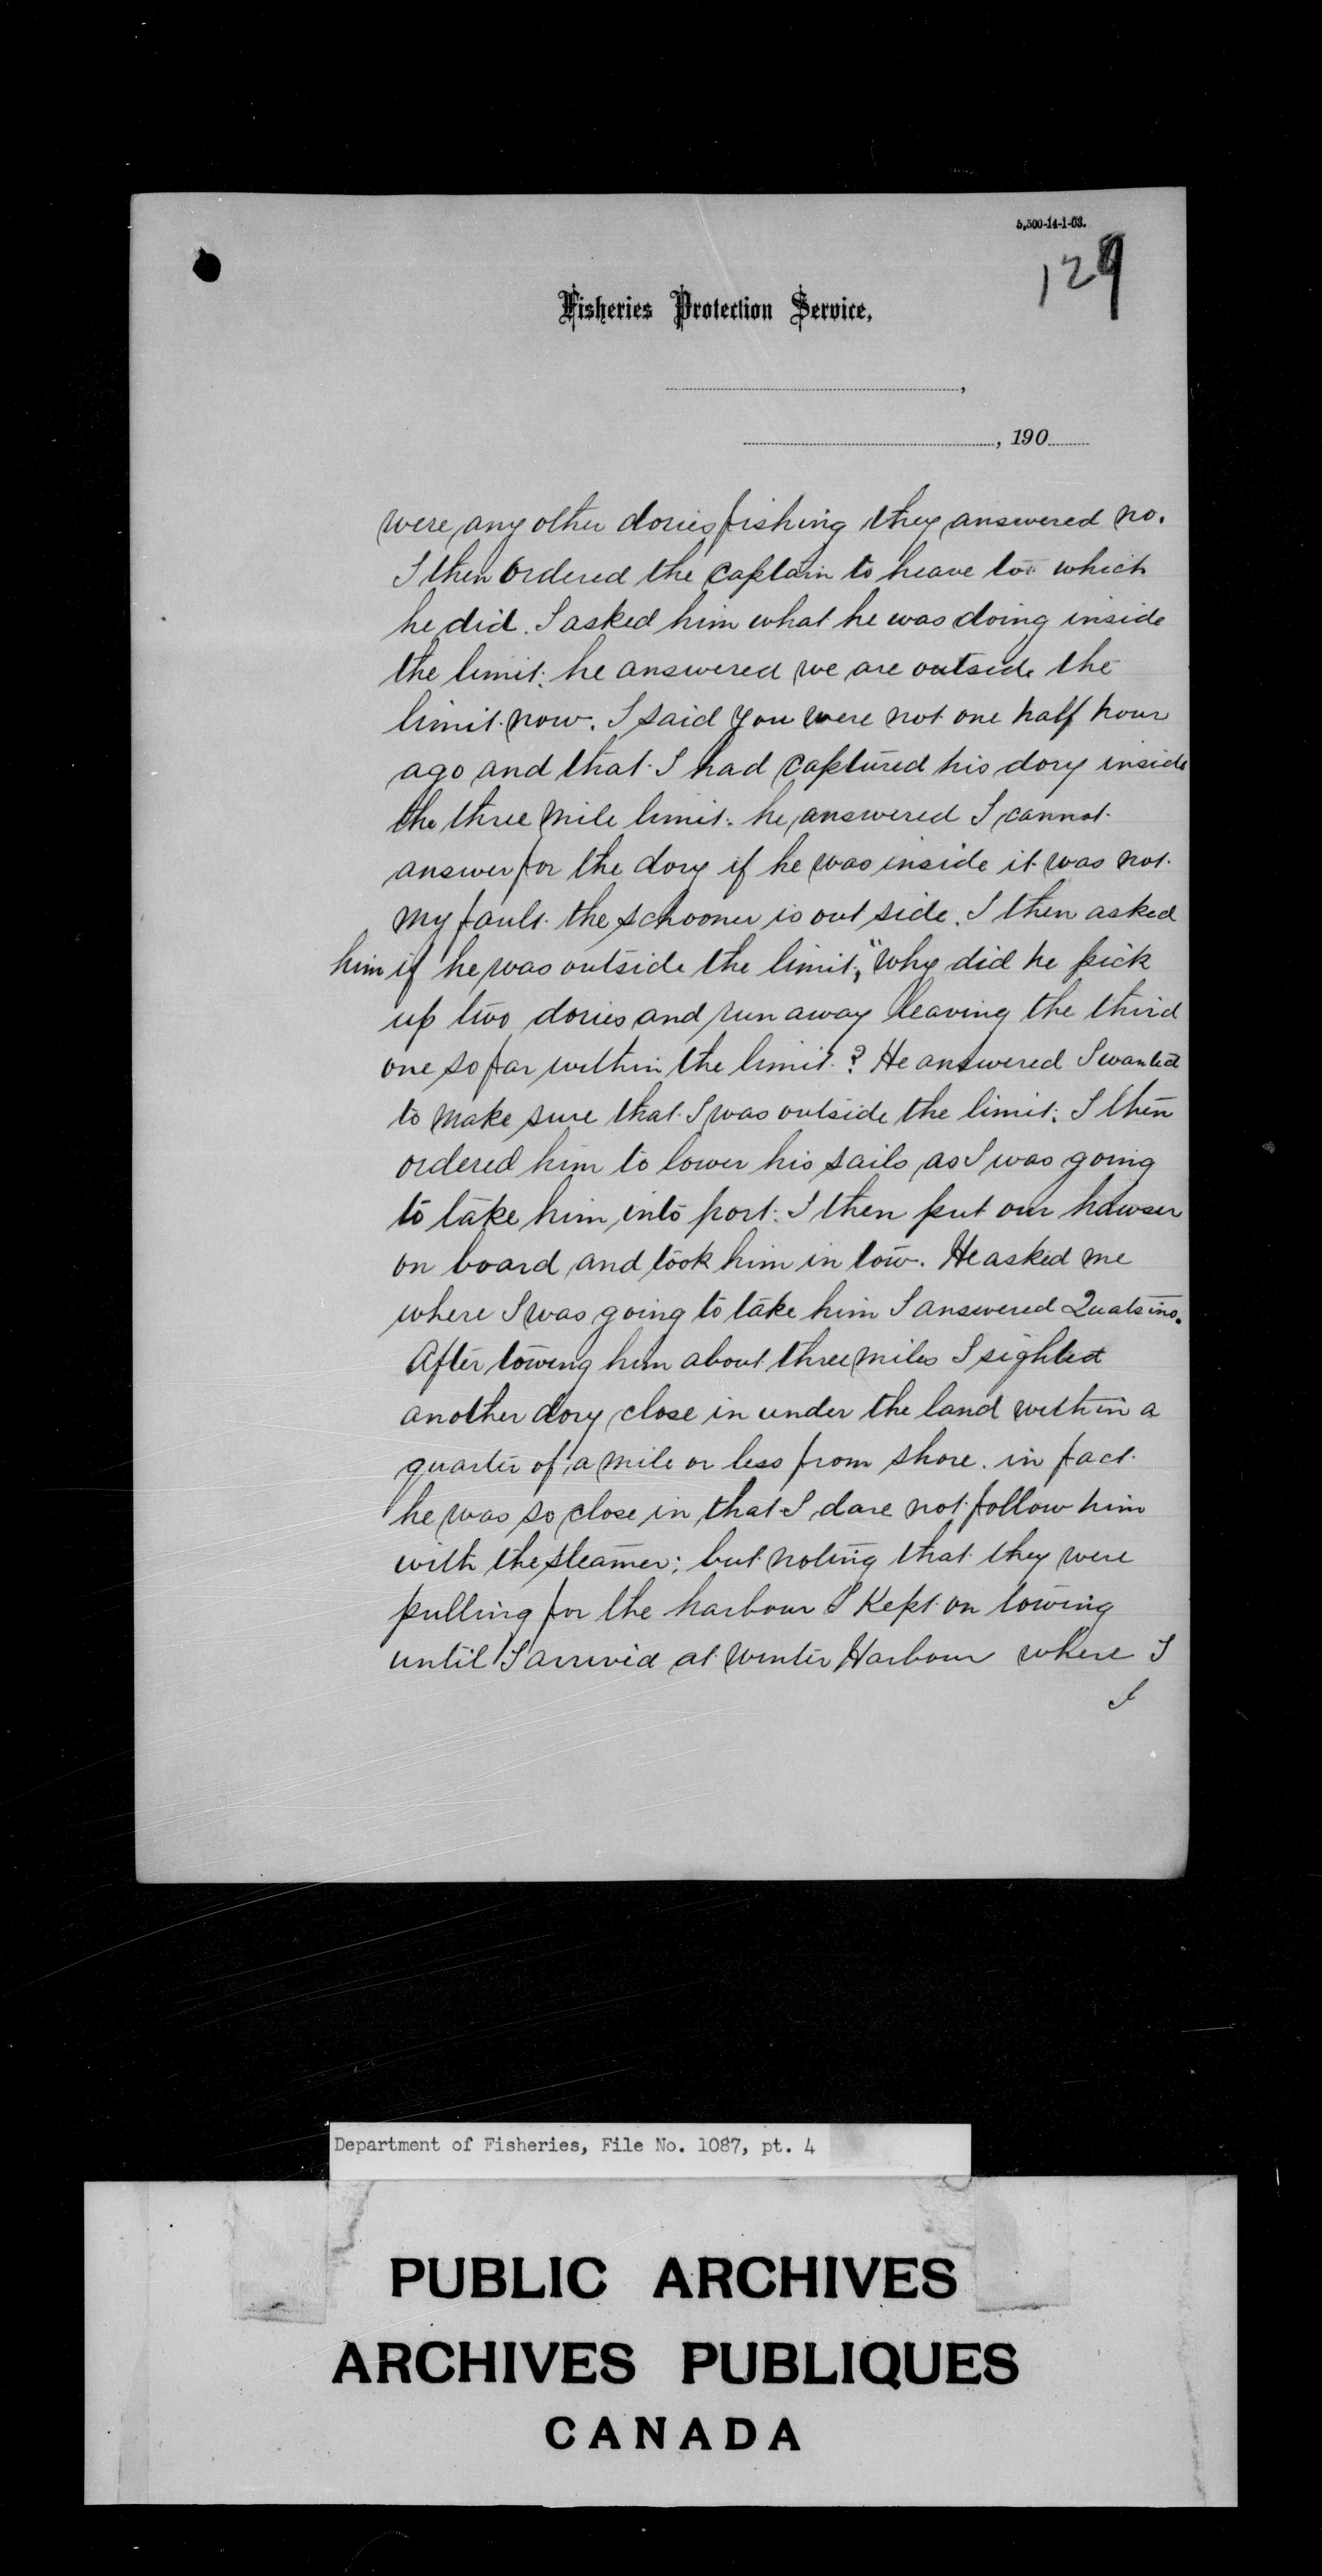 5,500-14-1-03.
129
Fisheries Protection Service,
,
, 190
were any other dories fishing they answered no.
I then ordered the Captain to heave too which
he did. I asked him what he was doing inside
the limit. he answered we are outside the
limit now. I said you were not one half hour
ago and that I had captured his dory inside
the three mile limit. he answered I cannot
answer for the dory if he was inside it was not
my fault the schooner is out side. I then asked
him if he was outside the limit, "why did he pick
up two dories and run away leaving the third
one so far within the limit? He answered I wanted
to make sure that I was outside the limit. I then
ordered him to lower his sails as I was going
to take him into port. I then put our hawser
on board and took him in tow. He asked me
where I was going to take him I answered Quatsino.
After towing him about three miles I sighted
another dory close in under the land within a
quarter of a mile or less from shore. in fact
he was so close in that I dare not follow him
with the steamer; but noting that they were
pulling for the harbour I Kept on towing
until I arrived at Winter Harbour where I
I
Department of Fisheries, File No. 1087, pt. 4
PUBLIC ARCHIVES
ARCHIVES PUBLIQUES
CANADA